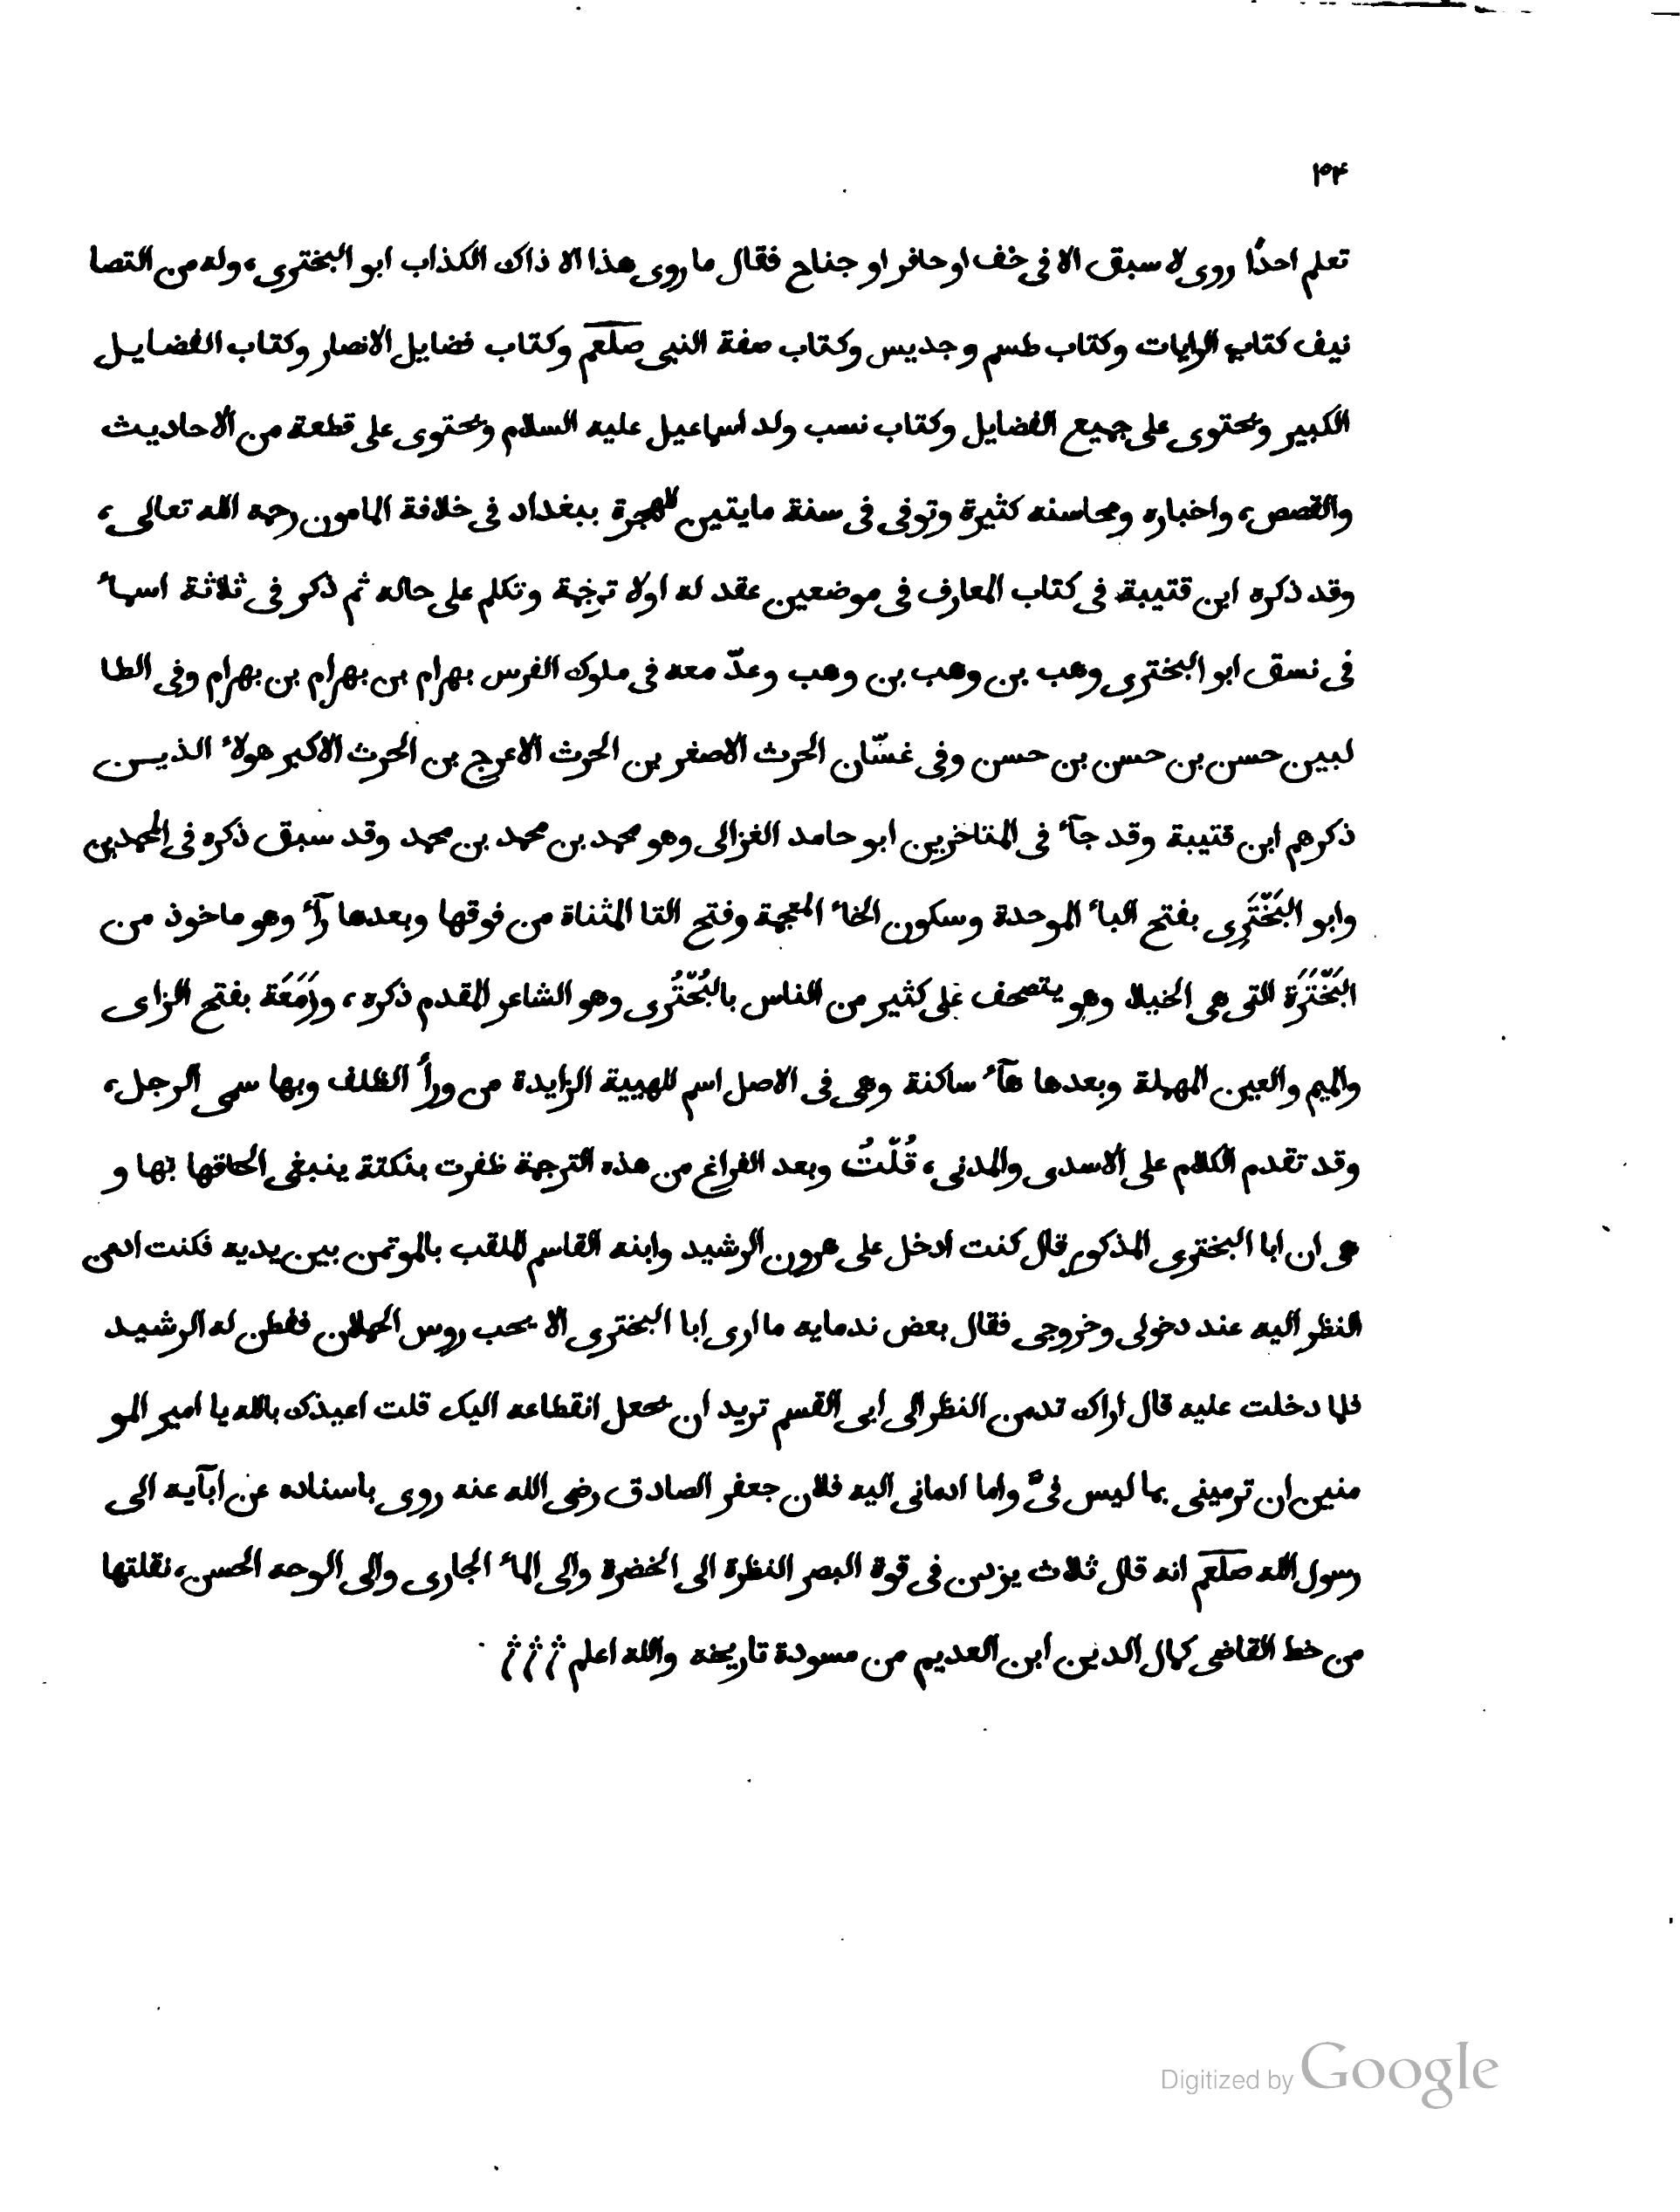 ٣٤
تعلم احدًا روى لا سبق الا فى خف او حافر او جناح فقال ما روى هذا الا ذاك الكذاب ابو البخترى، وله من التصا
نيف كتاب الرايات وكتاب طسم وجديس وكتاب صفة النبى صلعم وكتاب فضايل الانصار وكتاب الفضايل
الكبير ويحتوى على جميع الفضايل وكتاب نسب ولد اسماعيل عليه السلام ويحتوى على قطعة من الاحاديث
والقصص، واخباره ومحاسنه كثيرة وتوفى فى سنة مايتين للهجرة ببغداد فى خلافة المامون رحمه الله تعالى،
وقد ذكره ابن قتيبة فى كتاب المعارف فى موضعين عقد له اولا ترجمة وتكلم على حاله ثم ذكر فى ثلاثة اسمآء
فى نسق ابو البخترى وهب بن وهب بن وهب وعدّ معه فى ملوك الفرس بهرام بن بهرام بن بهرام وفى الطا
لبين حسن بن حسن بن حسن وفى غسّان الحرث الاصغر بن الحرث الاعرج بن الحرث الاكبر هولاء الذيـن
ذكرهم ابن قتيبة وقد جآء فى المتاخرين ابو حامد الغزالى وهو محمد بن محمد بن محمد وقد سبق ذكره فى المحمدين
وابو البَخْتَرِى بفتح الباء الموحدة وسكون الخاء المعجمة وفتح التا المثناة من فوقها وبعدها رآء وهو ماخوذ من
البَخْتَرَة التى هى الخيلا وهو يتصحف على كثير من الناس بالبُحْتُرى وهو الشاعر المقدم ذكره، وزَمَعَة بفتح الزاى
والميم والعين المهملة وبعدها هآء ساكنة وهى فى الاصل اسم للهيية الزايدة من وراء الظلف وبها سمى الرجل،
وقد تقدم الكلام على الاسدى والمدنى، قُلْتُ وبعد الفراغ من هذه الترجمة ظفرت بنكتة ينبغى الحاقها بها و
هى ان ابا البخترى المذكور قال كنت ادخل على هرون الرشيد وابنه القاسم الملقب بالموتمن بين يديه فكنت ادمن
النظر اليه عند دخولى وخروجى فقال بعض ندمايه ما ارى ابا البخترى الا يحب روس الحملان ففطن له الرشيد
فلما دخلت عليه قال اراك تدمن النظر الى ابى القسم تريد ان تجعل انقطاعه اليك قلت اعيذك بالله يا امير المو
منين ان ترمينى بما ليس فىّ واما ادمانى اليه فلان جعفر الصادق رضى الله عنه روى باسناده عن ابآيه الى
رسول الله صلعم انه قال ثلاث يزدن فى قوة البصر النظرة الى الخضرة والى الماء الجارى والى الوجه الحسن، نقلتها
من خط القاضى كمال الدين ابن العديم من مسودة تاريخه والله اعلم
Digitized by Google